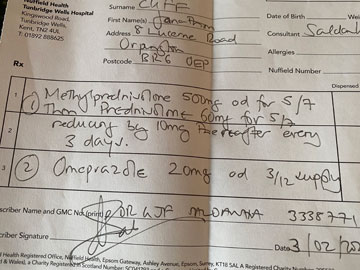 Nuffield Health
Tunbridge Wells Hospital
Kingswood Road,
Tunbridge Wells,
Kent, TN2 4UL
T: 01892 888625
Surname CLIFF
First Name(s) Jonathan
Address 8 Lucerne Road
Orpington
Postcode BR6 0EP
Date of Birth
We
Consultant Saldanha
Allergies
Nuffield Number
Rx
Dispensed
1
① Methylprednisolone 500mg od for 5/7
Then Prednisolone 60mg for 5/7
2
reducing by 10mg thereafter every
3 days.
3
② Omeprazole 20mg od 3/12 supply
scriber Name and GMC No.(print) DR GJF SALDANHA 3338771
scriber Signature
Date 3/02/202
al Health Registered Office, Nuffield Health, Epsom Gateway, Ashley Avenue, Epsom, Surrey, KT18 5AL A Registered Charity